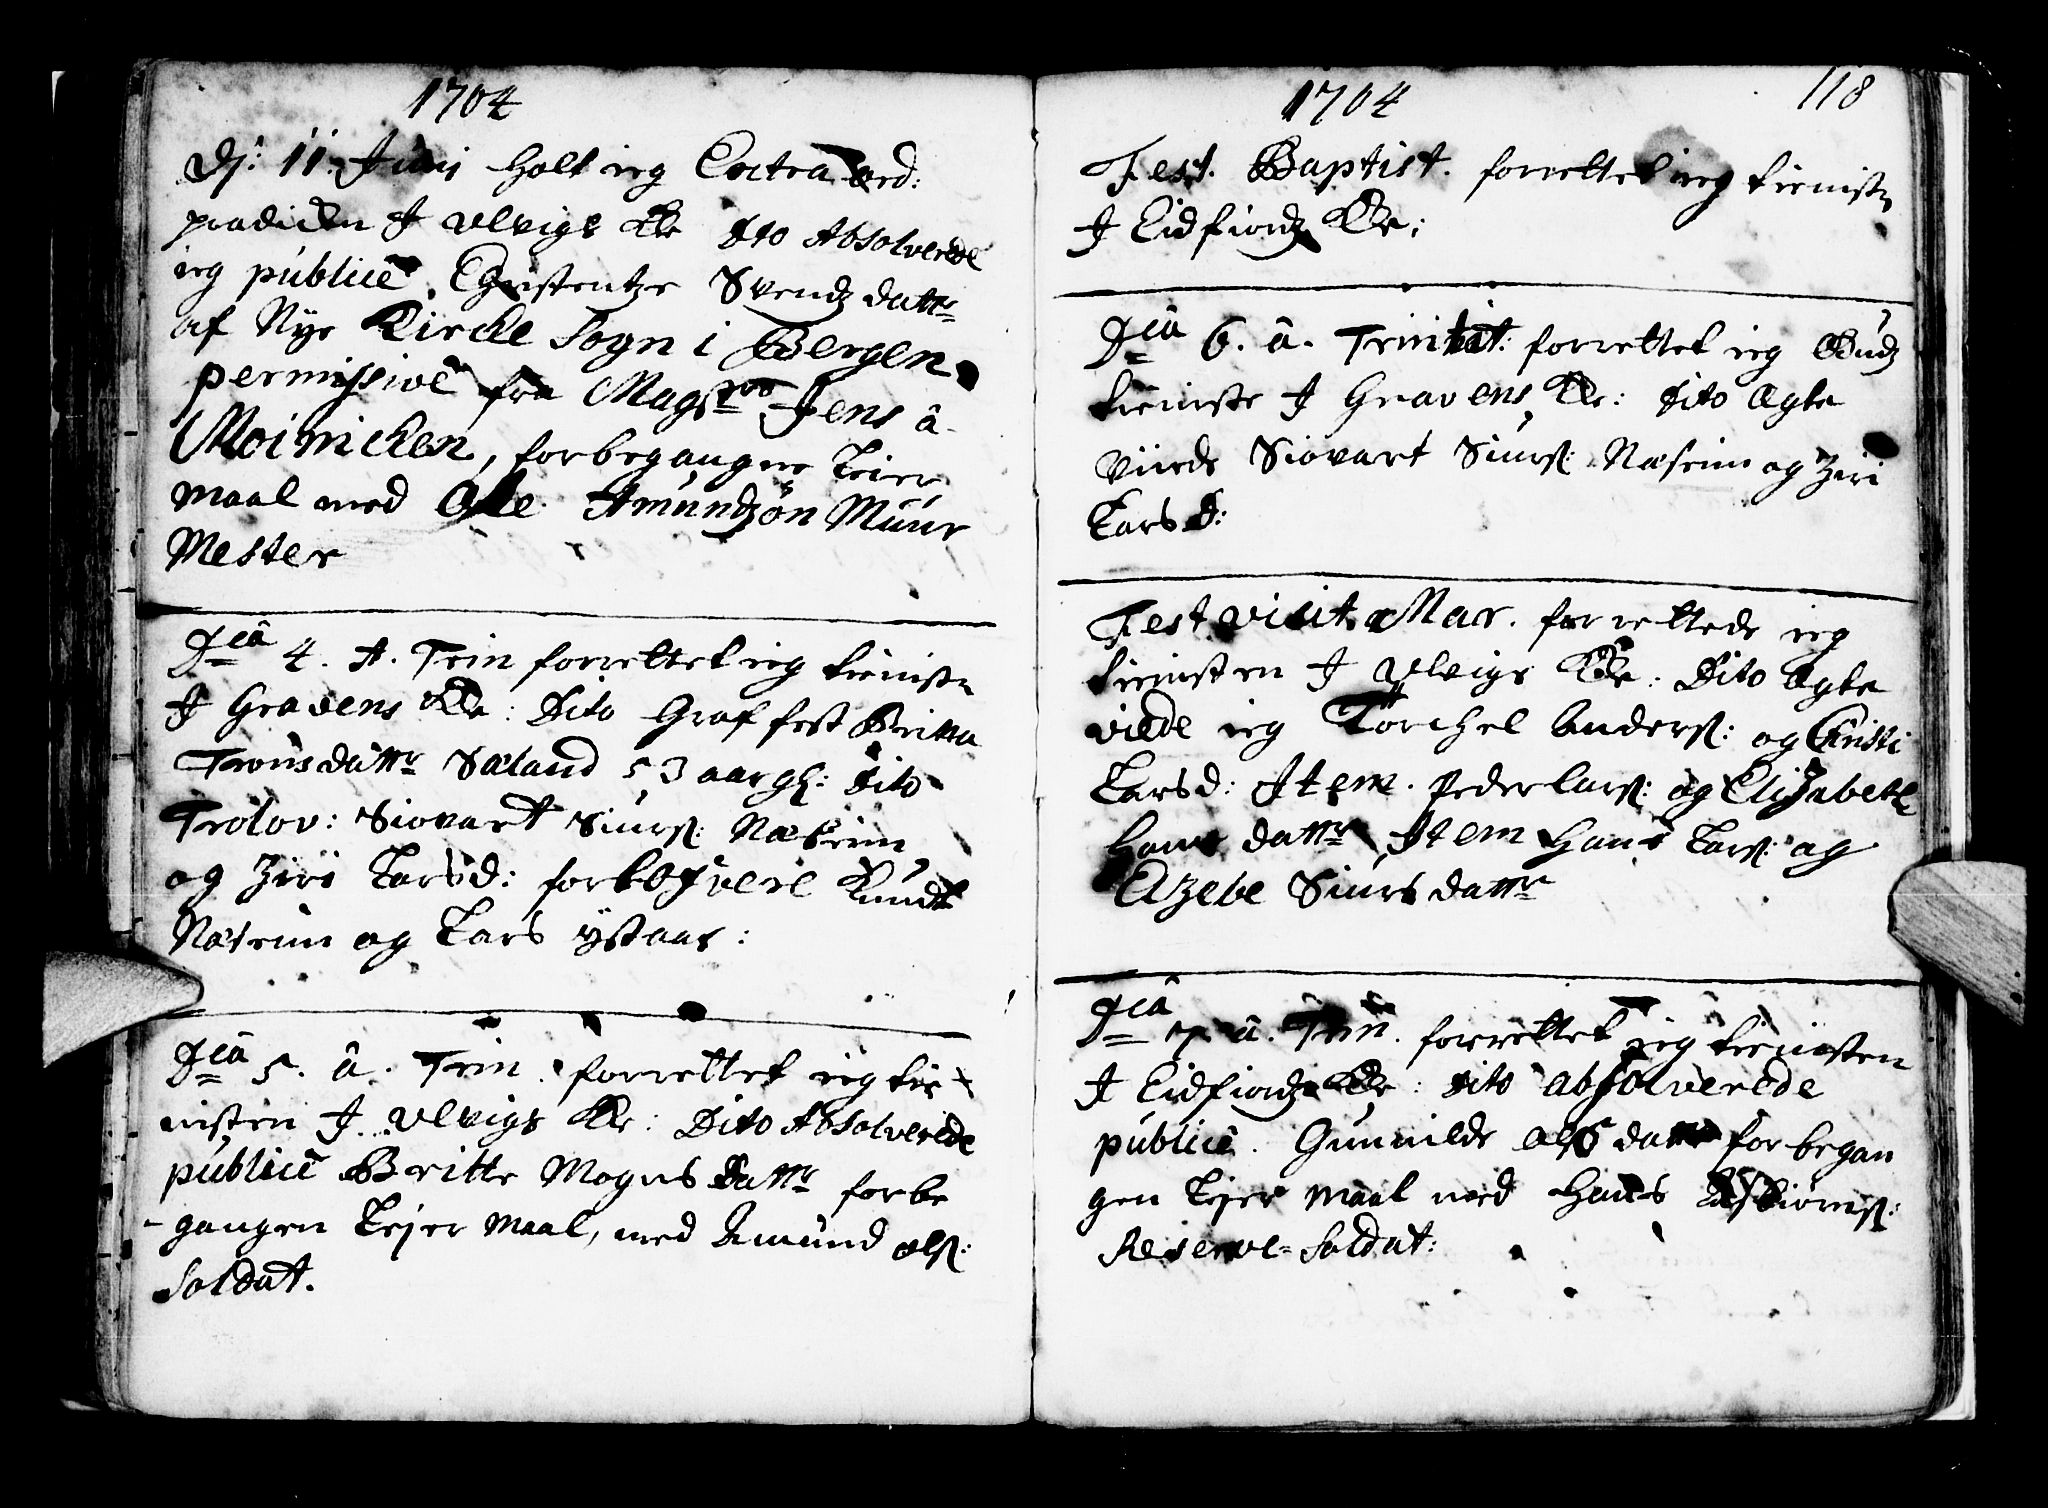 1704
Dj: 11. Junj holt ieg Extra ord:
prædiken J Ulvigs Ke Dto Absolverede
ieg publicè. Christentze Svendz datter
af Nye Kircke Sogn i Bergen
permissivè fra Magstro Jens â
Moinichen, forbegangne Leier
maal med Ole Amundzøn Muur
Mester
Dcâ 4. A. Trin forrettet ieg tienisten
J Gravens Ke: Dito Graffest Britta
Tronsdattr Sæland 53 aar gl: Dito
Trolov: Siovart Siurs: Næseim
og Ziri Larsd: forlovere Knud
Næseim og Lars ystaas:
Dcâ 5. â. Trin. forrettet ieg tie
nisten J. Ulvigs Ke: Dito Absolverede
publicè Britte Mogns Dattr forbe
gangen Lejermaal, med Amund ols:
Soldat.
1704 118
Fest. Baptist. forrettet ieg tienisten
J Eidfiordz Ke:
Dcâ 6. â. Trinitat: forrettet ieg Gudz
tieniste J Gravens Ke: Dito ægte
viiede Siovart Siurs: Næseim og Ziri
Lars D:
Fest visit. Mar. forrettede ieg
tienisten J Ulvigs Ke: Dito ægte
viede ieg Törchel Anders: og Christi
Larsd: Item. Peder Lars: og Elizabeth
Hans dattr Item Hans Lars: og
Elzebe Siurs dattr
Dcâ 7. â. Trin. forrettet ieg tienisten
J Eidfiordz Ke: Dito absolverede
publicè. Gunnilde Ols dattr forbegan
gen Lejermaal med Hans Asbiörns:
Reserve-Soldat: